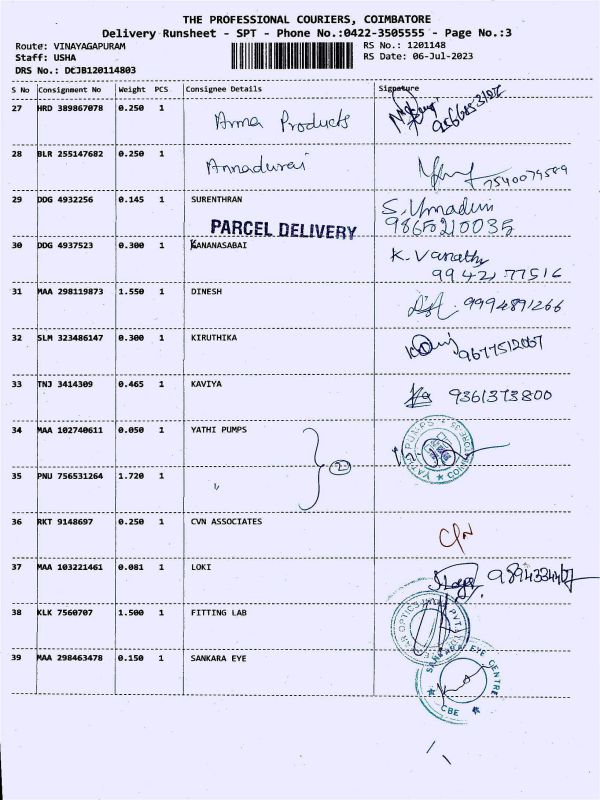 THE PROFESSIONAL COURIERS, COIMBATORE
Delivery Runsheet - SPT - Phone No.:0422-3505555 - Page No.:3
Route: VINAYAGAPURAM RS No.: 1201148
Staff: USHA RS Date: 06-Jul-2023
DRS No.: DCJB120114803
S No Consignment No Weight PCS Consignee Details Signature
27 HRD 389867078 0.250 1 Amma Products
28 BLR 255147682 0.250 1 Annadurai 7540079589
29 DDG 4932256 0.145 1 SURENTHRAN S. Umadevi
9865210035
PARCEL DELIVERY
30 DDG 4937523 0.300 1 KANANASABAI K. Vanathy
99421 77516
31 MAA 298119873 1.550 1 DINESH 9994891266
32 SLM 323486147 0.300 1 KIRUTHIKA 9677512007
33 TNJ 3414309 0.465 1 KAVIYA 9361373800
34 MAA 102740611 0.050 1 YATHI PUMPS YATHI PUMPS
35 PNU 756531264 1.720 1 " 2
36 RKT 9148697 0.250 1 CVN ASSOCIATES
37 MAA 103221461 0.081 1 LOKI
38 KLK 7560707 1.500 1 FITTING LAB
39 MAA 298463478 0.150 1 SANKARA EYE SANKARA EYE CENTRE
CBE